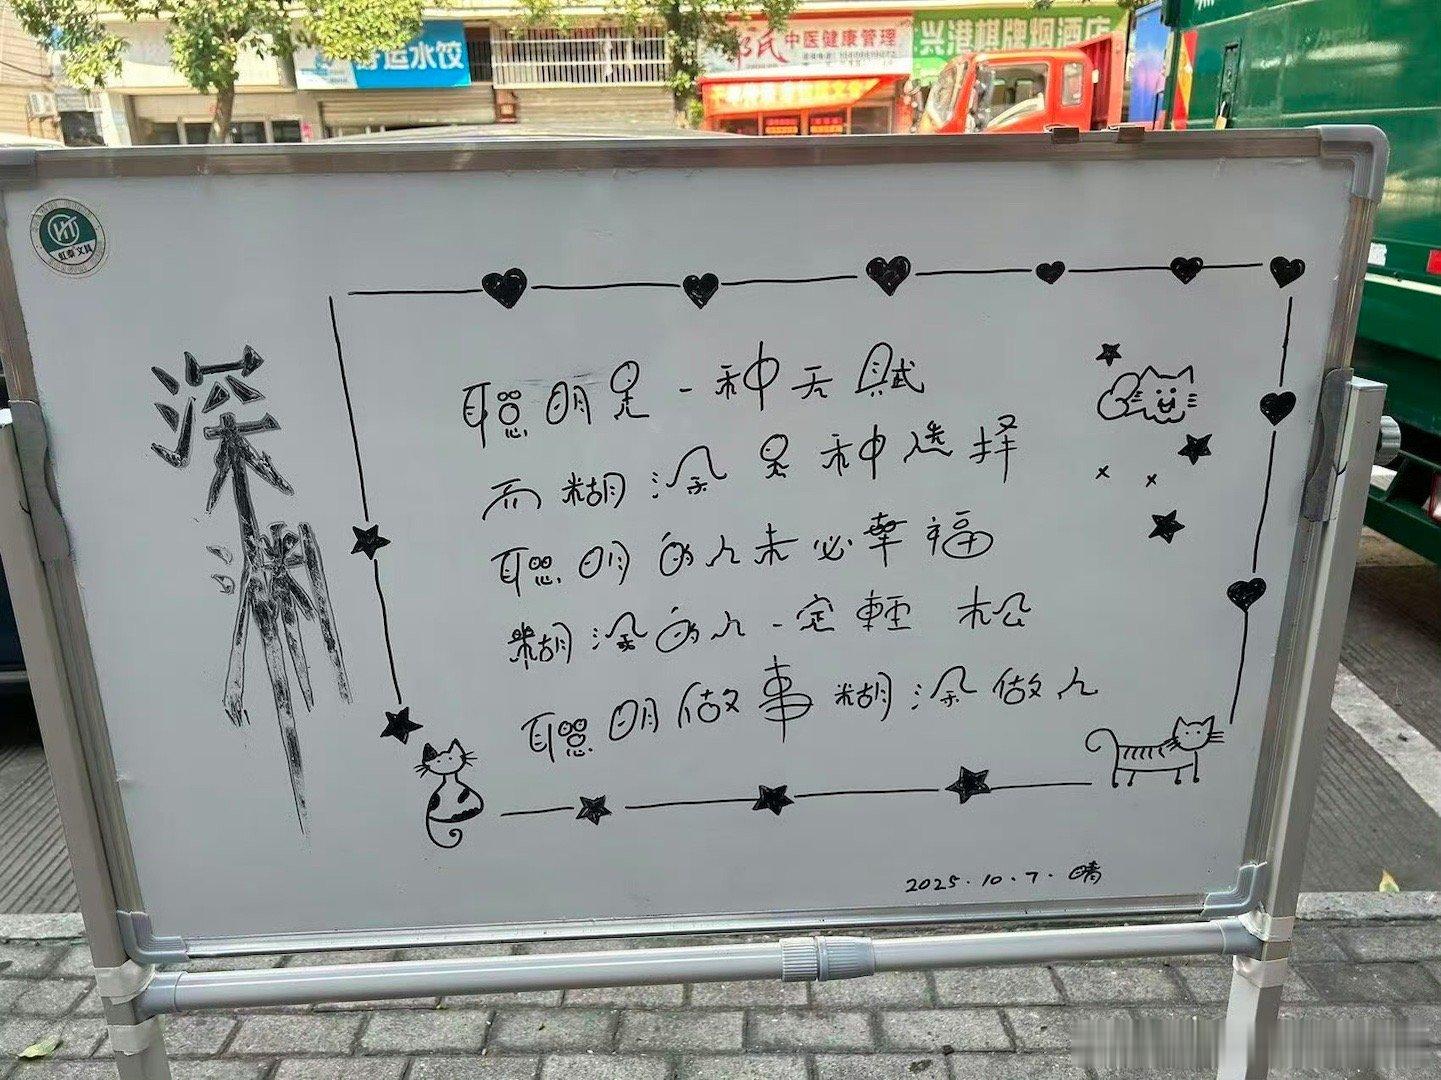 好运水饺
祁氏 中医健康管理
兴港棋牌烟酒店
HT
虹泰文具
深渊
聪明是一种天賦
而糊涂是种选择
聪明的人未必幸福
糊涂的人一定輕松
聪明做事糊涂做人
2025.10.7.晴